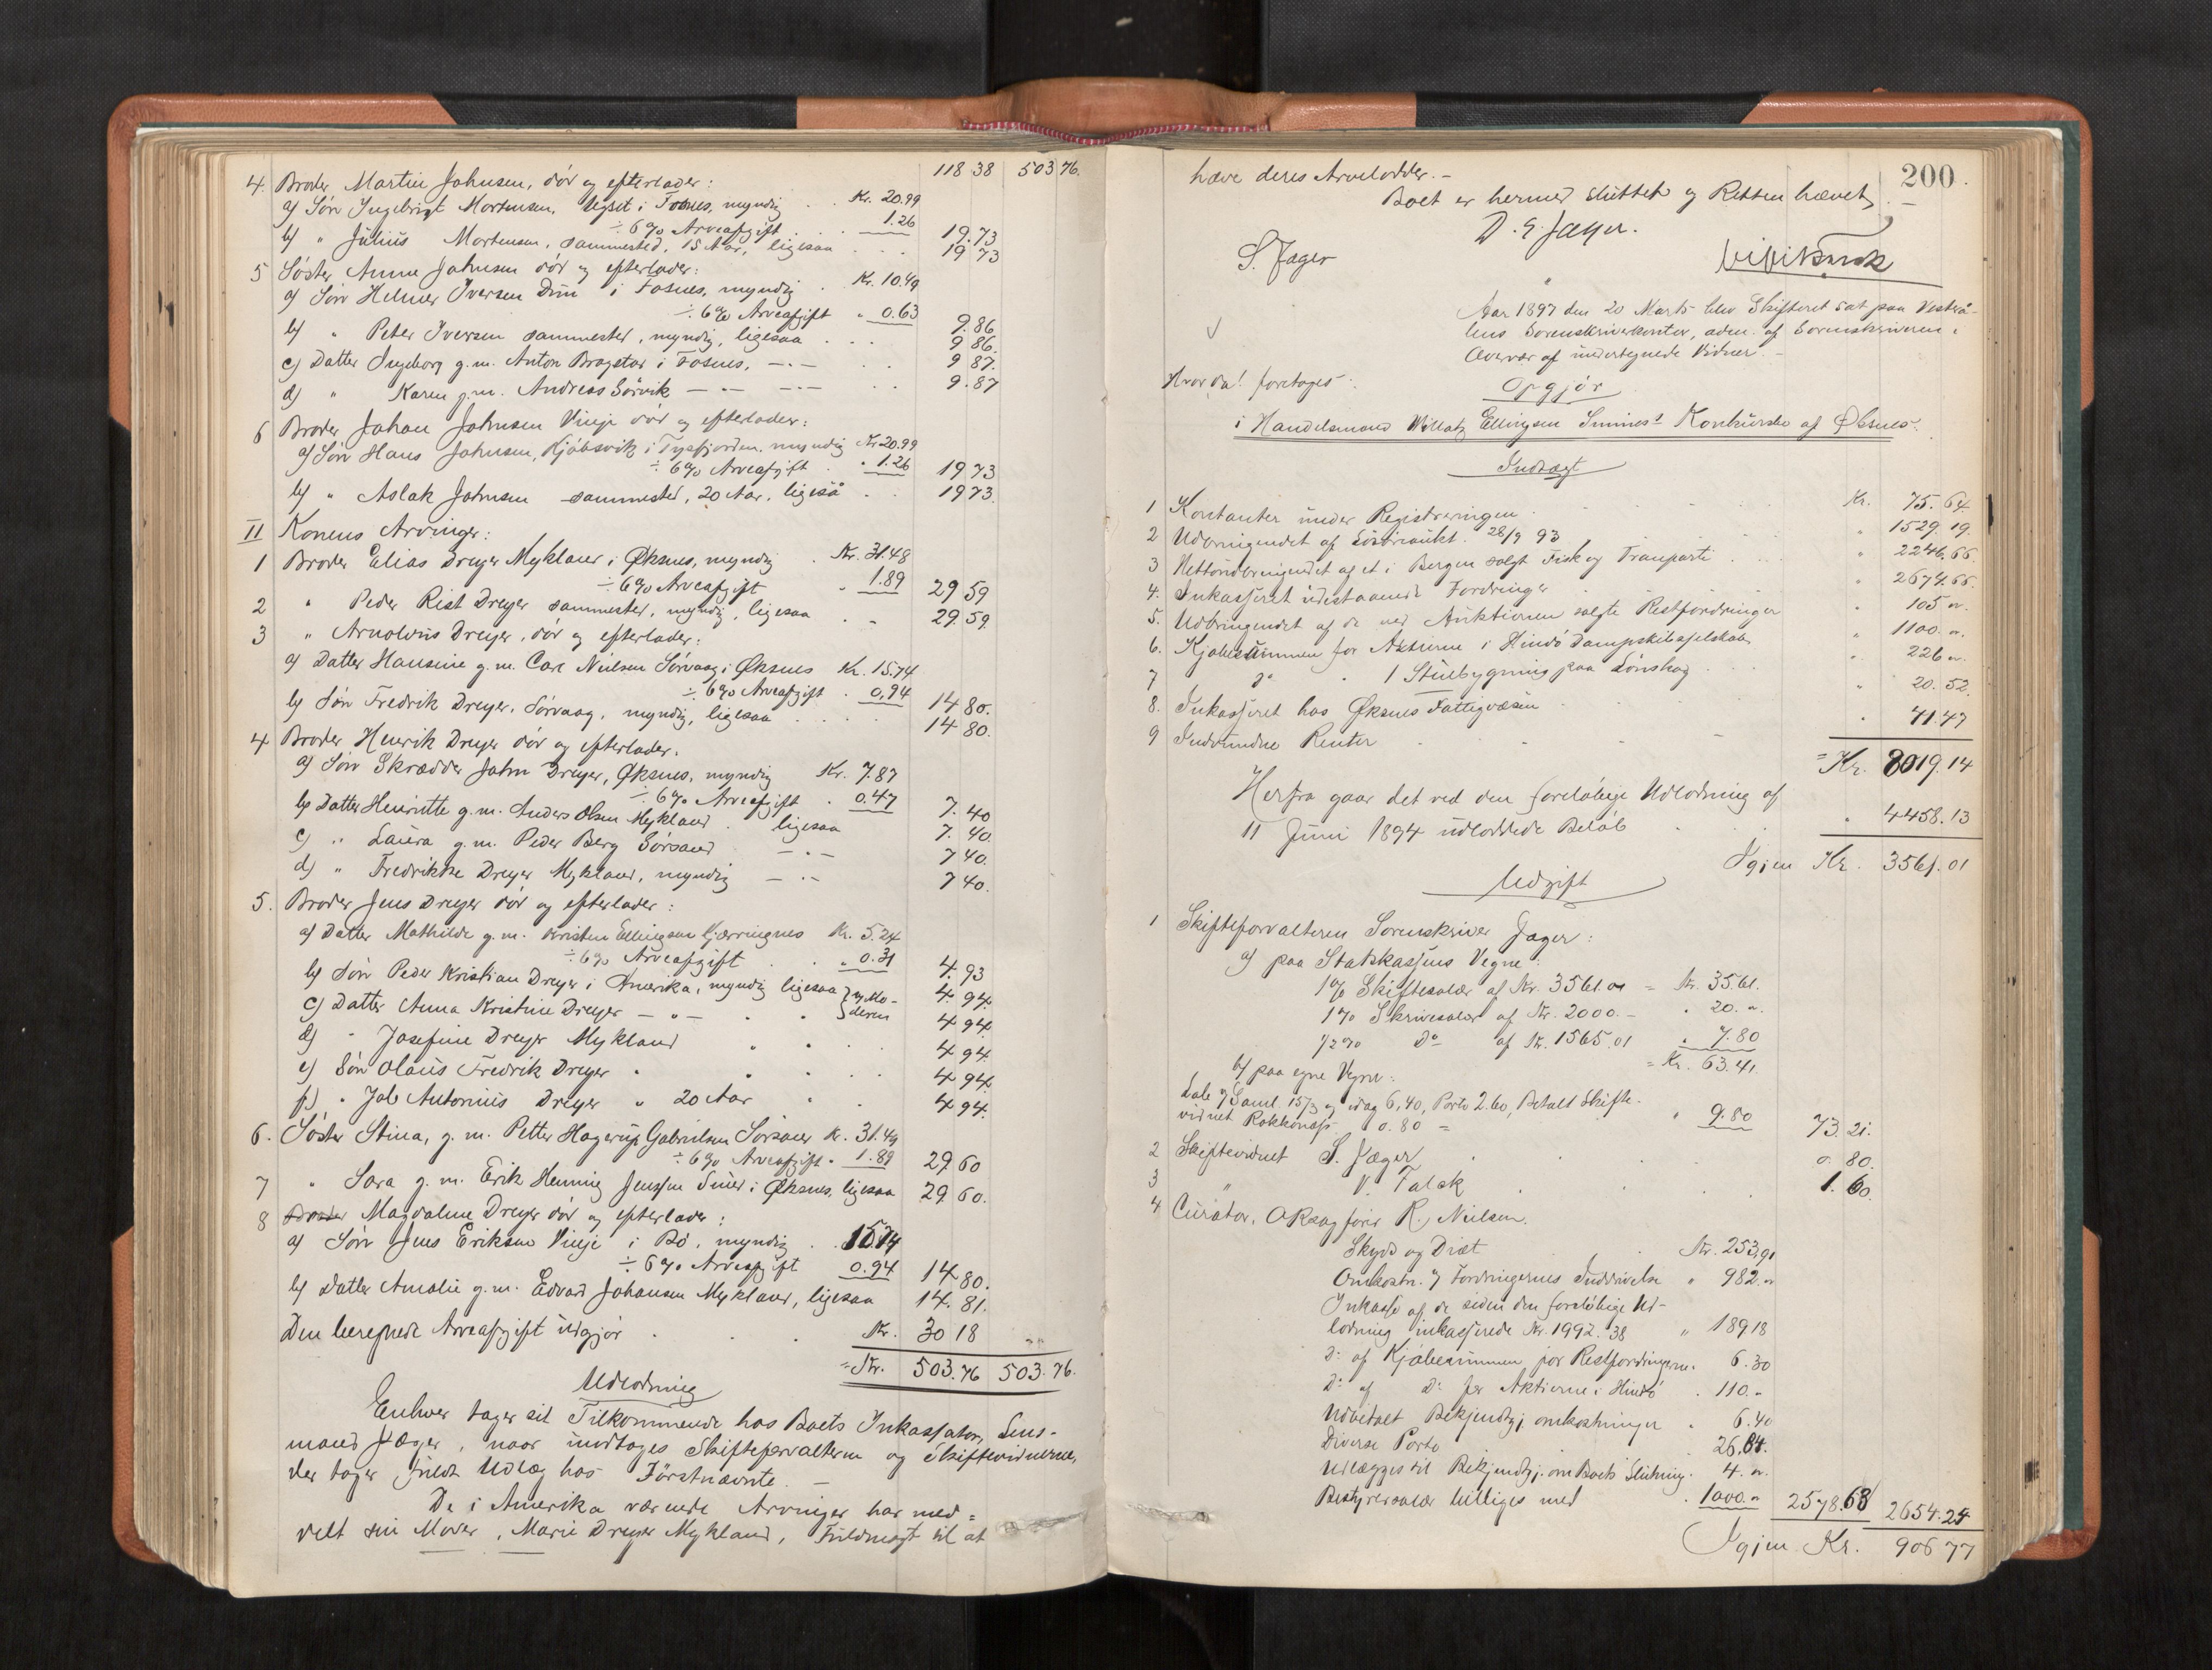 118 38 503 76.
4. Broder Martin Johnsen, död og efterlader:
a) Sön Ingebrigt Mortensen, i Fosnes, myndig . . Kr. 20.99
÷ 6 % Arveafgift . . . 1.26 19.73
b) " Julius Mortensen, sammested, 15 Aar, ligesaa . . . 19 73
5 Söster Anne Johnsen död og efterlader:
a) Sön Helmer Iversen Dun i Fosnes, myndig . Kr. 10.49
÷ 6 % Arveafgift " 0.63 9.86
b) " Peter Iversen sammested, myndig, ligesaa . . . 9 86.
c) Datter Ingeborg g.m. Anton Bragstad i Fosnes, — . — . . 9 87.
d) " Karen g.m. Andreas Sörvik — . — — . — . . 9.87
6 Broder Johan Johnsen Vinje död og efterlader:
a) Sön Hans Johnsen, Kjöbsvik i Tysfjorden, myndig Kr. 20.99
÷ 6 % Arveafgift . " 1.26 19 73
b) " Aslak Johnsen sammested, 20 Aar, ligesaa . . 19 73.
II Konens Arvinger:
1 Broder Elias Dreyer Mykland i Øksnes, myndig . Kr. 31.48
÷ 6 % Arveafgift " 1.89 29 59
2 " Peder Rist Dreyer sammested, myndig, ligesaa . . 29. 59.
3 " Arnoldus Dreyer, död og efterlader:
a) Datter Hansine g.m. Carl Nielsen Sörvaag i Øksnes Kr. 15.74
÷ 6 % Arveafgift . 0,94 14 80.
b) Sön Fredrik Dreyer, Sörvaag, myndig, ligesaa . . . . 14 80.
4 Broder Henrik Dreyer död og efterlader:
a) Sön Skrædder John Dreyer, Øksnes, myndig Kr. 7.87
÷ 6 % Arveafgift . 0.47 7. 40
b) Datter Henriette g.m. Anders Olsen Mykland . ligesaa 7. 40.
c) " Laura g.m. Peder Berg Sörsand — . — 7 40.
d) " Fredrikke Dreyer Mykland, myndig — . — 7 40.
5. Broder Jens Dreyer död og efterlader:
a) Datter Mathilde g.m. Kristen Ellingsen Gjærringnes Kr. 5.24
÷ 6 % Arveafgift . . " 0.31 4. 93
b) Sön Peder Kristian Dreyer i Amerika, myndig ligesaa } v/ Mo- 4. 94.
c) Datter Anna Kristine Dreyer — " — " " } deren 4 94.
d) " Josefine Dreyer Mykland " " . . 4 94.
e) Sön Olaus Fredrik Dreyer " " . . 4 94.
f) " Job Antonius Dreyer " 20 Aar " . 4 94.
6. Söster Stina, g.m. Petter Hagerup Gabrielsen Sörsand Kr. 31.49
÷ 6 % Arveafgift " 1.89 29 60
7 " Sara g.m. Erik Henning Jenssen Smed i Øksnes, ligesaa 29 60.
8 Magdalene Dreyer död og efterlader:
a) Sön Jens Eriksen Vinje i Bö, myndig . . 15.74
÷ 6 % Arveafgift 0.94 14 80.
b) Datter Amalie g.m. Edvard Johansen Mykland, ligesaa 14. 81.
Den beregnede Arveafgift udgjør . . . Kr. 30 18 " "
= Kr. 503.76 503.76.
Udlodning
Enhver tager sit Tilkommende hos Boets Inkassator, Lens-
mand Jæger, naar undtages Skifteforvalteren og Skiftevidnerne,
der tager fuldt Udlæg hos Förstnævnte. —
De i Amerika værende Arvinger har med-
delt sin Moder, Marie Dreyer Mykland, Fuldmagt til at
200.
hæve deres Arvelodder. —
Boet er hermed sluttet og Retten hævet. —
D. E. Jæger.
S. Jæger
Aar 1897 den 20 Marts blev Skifteret sat paa Vesterå-
lens Sorenskriverkontor, adm. af Sorenskriveren i
Overvær af undertegnede Vidner. —
Hvorda! foretoges:
Opgjör
i Handelsmand Willatz Ellingsen Smines's Konkursbo af Øksnes.
Indtægt
1 Kontanter under Registreringen . . . . Kr. 75. 64.
2 Udbringendet af Lösöreaukt. 28/9 93 . . . " 1529. 19.
3 Nettoudbringendet af et i Bergen solgt Fisk og Tranparti . . . " 2246.66
4. Inkasseret udestaaende Fordringer . . . " 2674.66
5. Udbringendet af de ved Auktionen solgte Restfordringer " 105 ".
6. Kjøbesummen for Aktierne i Hindö Dampskibsselskab " 1100. ".
7 do " 1 Stuebygning paa Lönskog . . . " 226 ".
8. Inkasseret hos Øksnes Fattigvæsen . . . " 20. 52.
9 Indvundne Renter . . . . " 41.47
= Kr. 8019.14
Herfra gaar det ved den foreløbige Udlodning af
11 Juni 1894 udloddede Beløb . . . " 4458.13
Igjen Kr. 3561.01
Udgift
1 Skifteforvalteren Sorenskriver Jæger:
a) paa Statskassens Vegne:
1 % Skiftesalær af Kr. 3561.01 = Kr. 35.61.
1 % Skrivesalær af Kr. 2000. — " 20. ".
1/2 % Do af Kr. 1565.01 " 7.80
= Kr. 63.41.
b) paa egne Vegne:
7 Saml. 15/3 og idag 6,40, Porto 2.60, Betalt Skifte-
vidnet 0.80 = " 9.80 73. 21.
2 Skiftevidnet S. Jæger . . . . 0. 80.
3 " V. Falck . . . . 1. 60.
4 Curator, O.R.sagförer R. Nielsen.
Skyds og Diæt . Kr. 253,91
Omkostn. v/ Fordringernes Inddrivelse " 982. "
Inkasso af de siden den foreløbige Ud-
lodning inkasserede Kr. 1992.38 " 189 18
Do af Kjøbesummen for Restfordringerne. 6.30
Do af Do for Aktierne i Hindö . 110. "
Udbetalt Bekjendtgj. omkostninger " 6.40
Diverse Porto . 26,84.
Udlægges til Bekjendtgj. om Boets Slutning. 4. ".
Bestyrersalær billiges med . 1000. " 2578.63 2654.24
Igjen Kr. 906 77